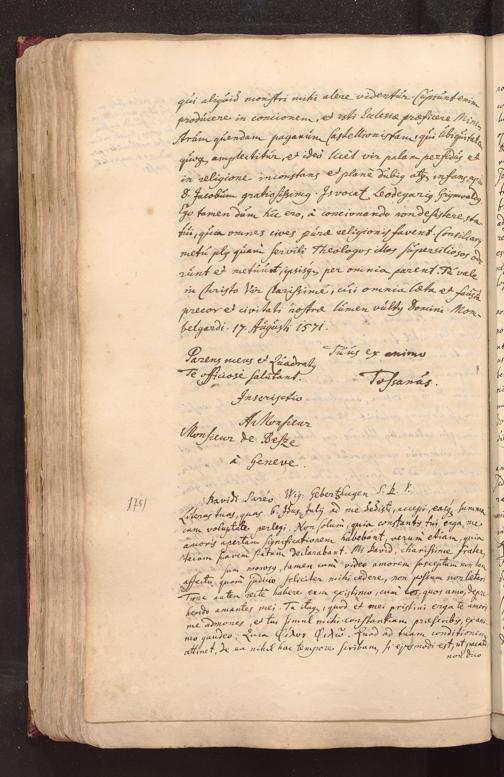 qui aliquid monstri mihi alere videntur Cupiunt enim
producere in concionem, et isti Ecclesiæ præficere Mini-
strum quendam paganum Castellionistam, qui Ubiquitatem
quoq amplectitur, et ideo licet vir palam perfidus et
in religione inconstans et plane dubig atq infans, apud
D. Jacobum gratiosissimg. Is vocat Leodegarig Grymvald
Ego tamen dum hic ero, à concionando non desistere sta-
tui, quia omnes cives puræ religioni favent. Consiliarii
metu plg quam servili Theologos illos superciliosos od-
runt et metuunt, ipsisq per omnia parent. Tu vale
in Christo Vir Clarissime, cui omnia læta et fausta
precor et civitati nostræ lumen vultg Domini. Mon-
belgardi. 17. Augusti 1571.
Parens meus et Quadratg
Te officiose salutant.
Tuus ex animo
Tossanus.
Inscriptio
A Monsieur
Monsieur de Besze
à Geneve.
Davidi Pareo. Wig. S. P.
Literas tuas, quas 6. Idus July ad me dedisti, accepi, easq summa
cum voluptate perlegi. Non solum, quia constantis tui erga me
amoris apertam significationem habebant, verum etiam, quia
Mi David, charissime frater,
tamen cum video amorem susceptum
affectu, quam judicio feliciter mihi cedere, non possum non lætari
Tunc autem recte habere rem existimo, cum eos, quos amo, depre-
hendo amantes mei. Tu itaq, quod et mei pristini erga te amoris
me admones, et tui simul mihi constantiam præscribis, ex ani-
mo gaudeo. Quod ad tuam conditionem
attinet, de ea nihil hoc tempore scribam, si ejusmodi est, ut
non dico